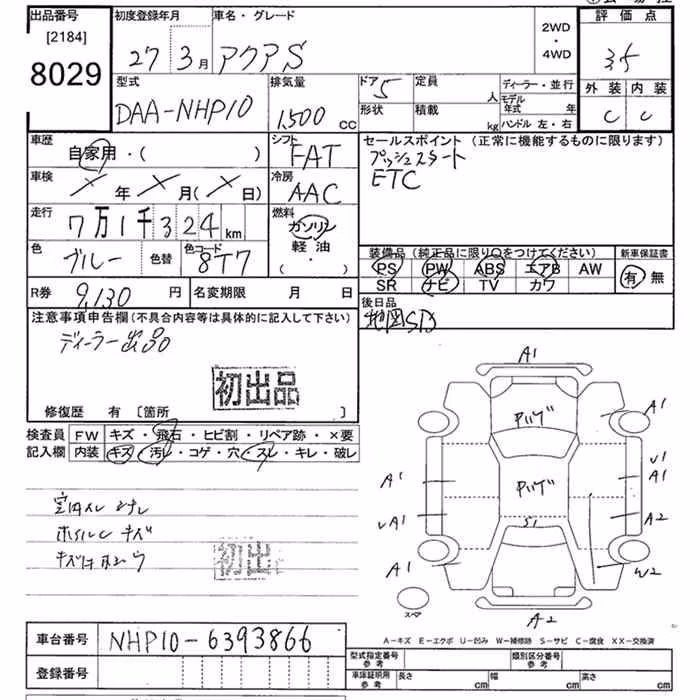 出品番号
[2184]
8029
初度登録年月
27 3月
車名・グレード
アクアS
2WD
・
4WD
評価点
3.5
外装 内装
C C
型式
DAA-NHP10
排気量
1,500 CC
ドア 5
形状
定員 人
積載 kg
ディーラー・並行
モデル年式 年
ハンドル 左・右
車歴
自家用・( )
シフト
FAT
車検
年 月( 日)
冷房
AAC
走行
7万1千324km
燃料
ガソリン
軽油
( ・ )
色
ブルー
色替
色コード
8T7
セールスポイント(正常に機能するものに限ります)
プッシュスタート
ETC
装備品(純正品に限り〇をつけてください)
PS PW ABS エアB AW
SR ナビ TV カワ
新車保証書
有 無
R券 9,130 円
名変期限 月 日
後日品
地図SD
注意事項申告欄(不具合内容等は具体的に記入して下さい)
ディーラー出品
初出品
修復歴 有〔箇所 〕
検査員記入欄
FW キズ・飛石・ヒビ割・リペア跡・×要
内装 キズ・汚レ・コゲ・穴・スレ・キレ・破レ
ホイルC キズ
初出
A1
Pバゲ
A1
A1
Pバゲ
U1
A1
UA1
S1
A2
A1
W2
スペア
A2
A-キズ E-エクボ U-凹み W-補修跡 S-サビ C-腐食 XX-交換済
車台番号 NHP10-6393866
登録番号
型式指定番号
参考
類別区分番号
参考
車庫証明用
参考
長さ cm
幅 cm
高さ cm